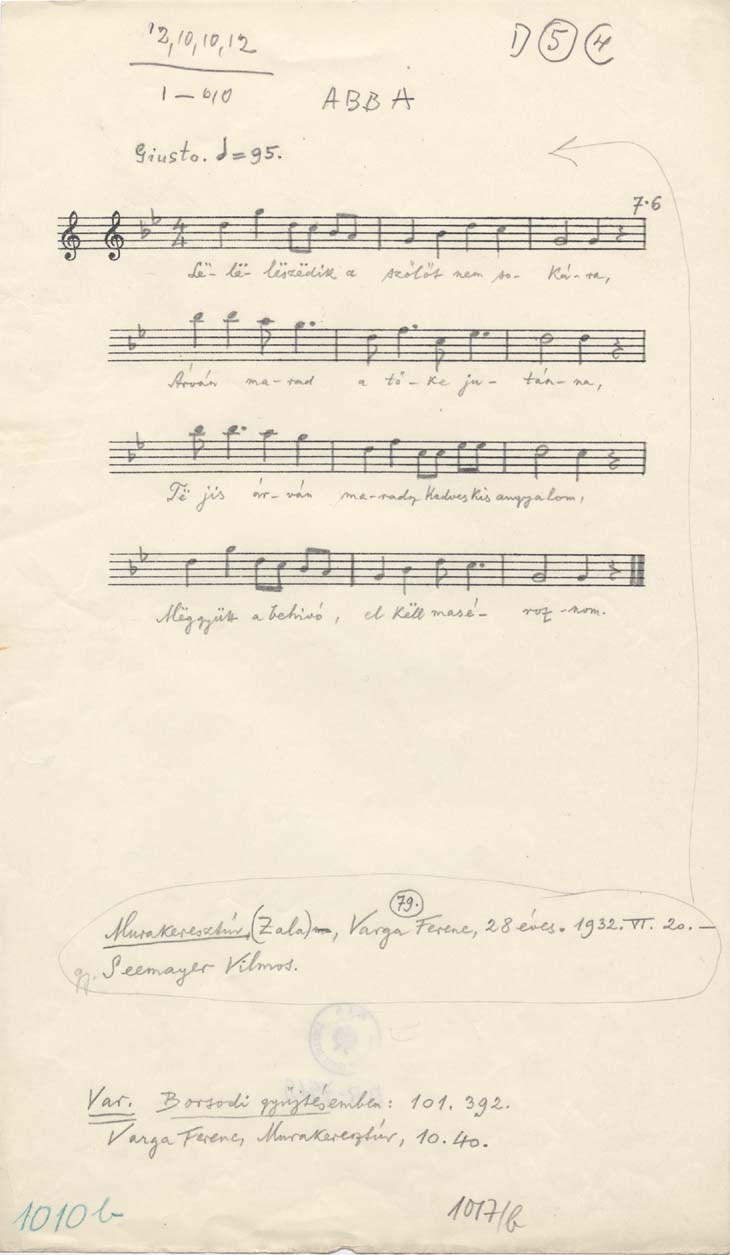 12,10,10,12
1 — b10
ABBA
D 5 4
Giusto. = 95.
7.6
4
4
Lë- lë- lëszëdik a szőlőt nem so- ká- ra,
Árván ma- rad a tő- ke ju- tán- na,
Të jis ár- ván ma- radz kedves kis angyalom,
Mëggyütt a behivó, el këll masé- roz -nom.
79.
Murakeresztúr, (Zala), Varga Ferenc, 28 éves. 1932. VI. 20. —
gy. Seemayer Vilmos.
Var. Borsodi gyűjtésemben: 101. 392.
Varga Ferenc, Murakeresztúr, 10.40.
1010 b
1017/b